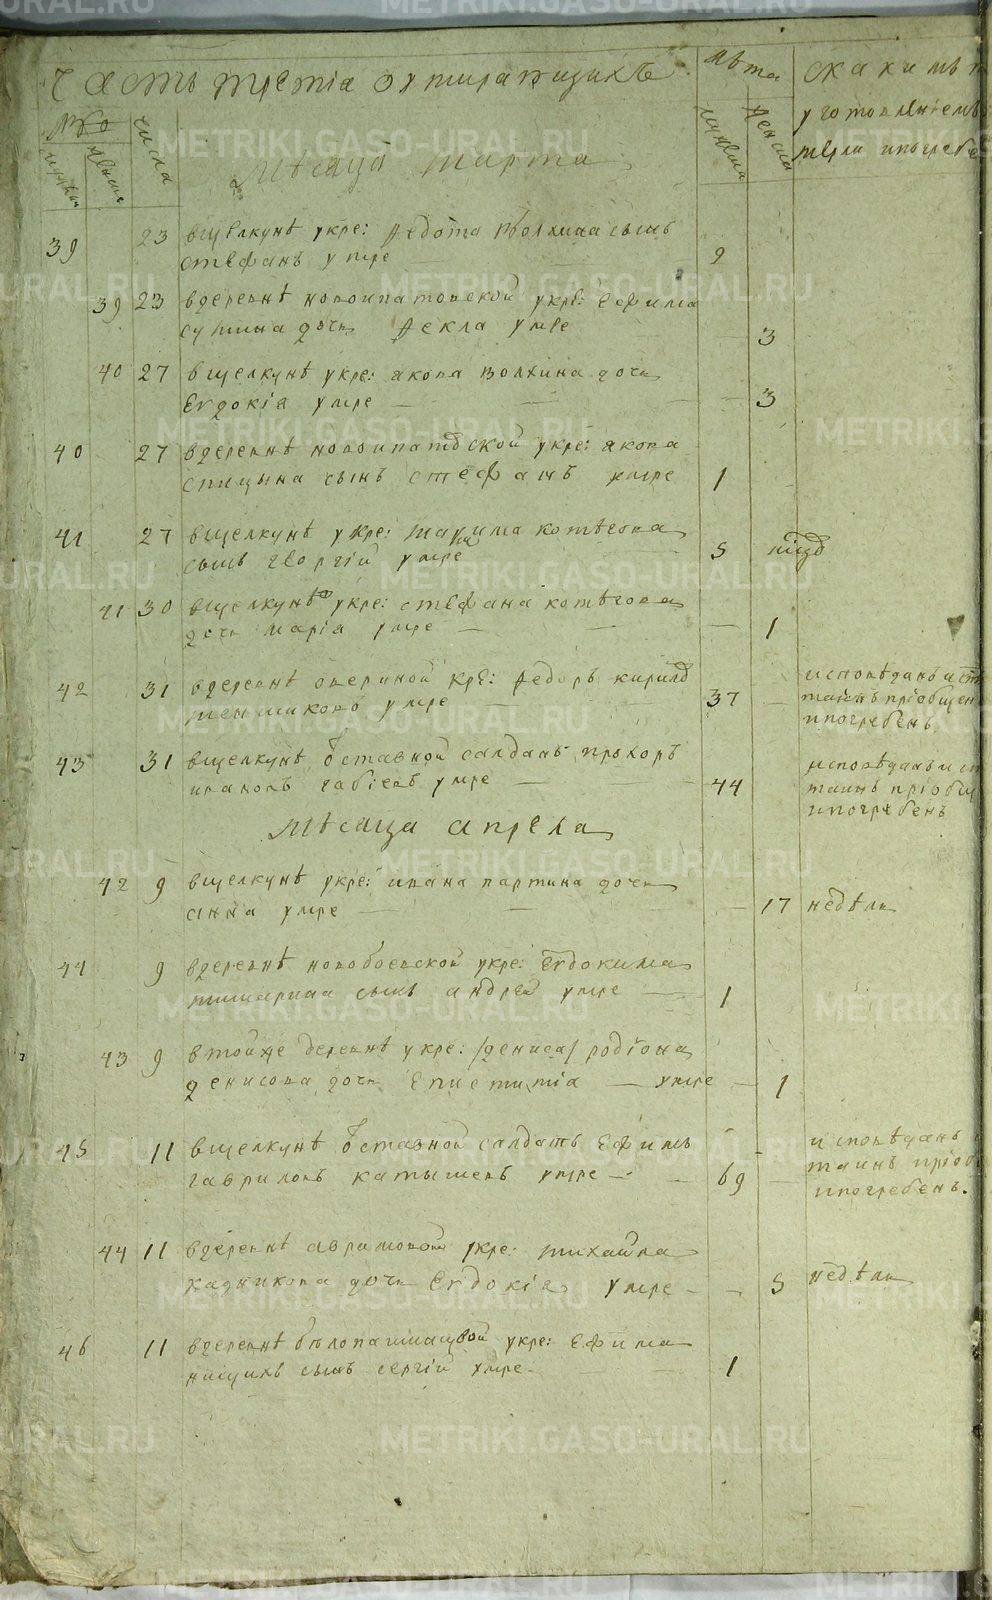 Часть третiа оумирающихъ
лѣта
скакимъ
уготовлениемъ
умерли ипогребе
№
мужеска
женска
числа
мужеска
женска
Мѣсяца марта
39 23 вщелкунѣ укре: Ѳедота волхина сынъ
стеѳанъ умре 9
39 23 вдеревнѣ новоипатовской укре: Ефима
сумина дочь Ѳекла умре 3
40 27 вщелкунѣ укре: якова волхина дочь
Евдокiа умре 3
40 27 вдеревнѣ новоипатовской укре: якова
спицына сынъ стефанъ умре 1
41 27 вщелкунѣ укре: маѯима котѣгова
сынъ георгiй умре 5 мцъ
41 30 вщелкунѣ укре: стефана котѣгова
дочь марiа умре 1
42 31 вдеревнѣ авериной кре: Ѳедоръ кирилов
меншиковъ умре 37
исповѣданъ и свт
таинъ прiобщен
ипогребенъ
43 31 вщелкунѣ ѿставной салдатъ прохоръ
ивановъ бабiевъ умре 44
исповѣданъ и св
таинъ прiобщ
ипогребенъ
Мѣсяца апреля
42 9 вщелкунѣ укре: ивана партина дочь
анна умре 17 недѣль
44 9 вдеревнѣ новобоевской укре: Евдокима
тишарина сынъ андрей умре 1
43 9 втойже деревнѣ укре: /дениса/ родiона
денисова дочь Епистимiа умре 1
45 11 вщелкунѣ ѿставной салдатъ Ефимъ
гавриловъ катышевъ умре 69
исповѣданъ
таинъ прiоб
ипогребенъ.
44 11 вдеревнѣ аврамовой укре: михайла
хадыкова дочь Евдокiа умре 5 недѣль
46 11 вдеревнѣ бѣлопашицовой укре: Ефима
сынъ сергiй умре 1
METRIKI.GASO-URAL.RU